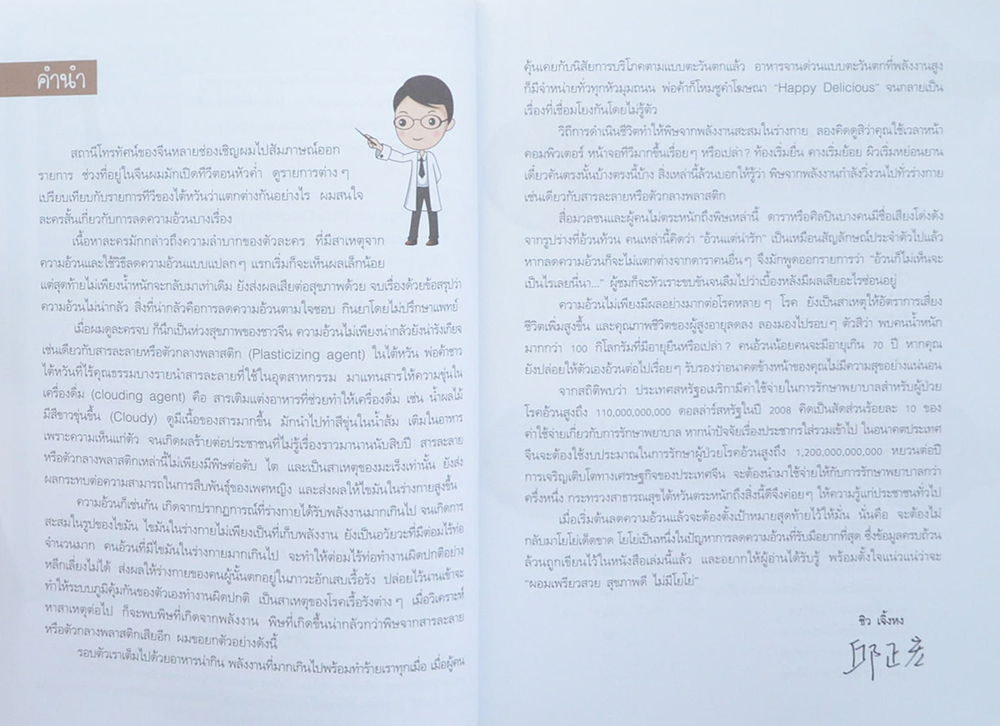 คำนำ
สถานีโทรทัศน์ของจีนหลายช่องเชิญผมไปสัมภาษณ์ออก
รายการ ช่วงที่อยู่ในจีนผมมักเปิดทีวีตอนหัวค่ำ ดูรายการต่างๆ
เปรียบเทียบกับรายการทีวีของไต้หวันว่าแตกต่างกันอย่างไร ผมสนใจ
ละครสั้นเกี่ยวกับการลดความอ้วนบางเรื่อง
เนื้อหาละครมักกล่าวถึงความลำบากของตัวละคร ที่มีสาเหตุจาก
ความอ้วนและใช้วิธีลดความอ้วนแบบแปลกๆ แรกเริ่มก็จะเห็นผลเล็กน้อย
แต่สุดท้ายไม่เพียงน้ำหนักจะกลับมาเท่าเดิม ยังส่งผลเสียต่อสุขภาพด้วย จบเรื่องด้วยข้อสรุปว่า
ความอ้วนไม่น่ากลัว สิ่งที่น่ากลัวคือการลดความอ้วนตามใจชอบ กินยาโดยไม่ปรึกษาแพทย์
เมื่อผมดูละครจบ ก็นึกเป็นห่วงสุขภาพของชาวจีน ความอ้วนไม่เพียงน่ากลัวยังน่ารังเกียจ
เช่นเดียวกับสารละลายหรือตัวกลางพลาสติก (Plasticizing agent) ในไต้หวัน พ่อค้าชาว
ไต้หวันที่ไร้คุณธรรมบางรายนำสารละลายที่ใช้ในอุตสาหกรรม มาแทนสารให้ความขุ่นใน
เครื่องดื่ม (clouding agent) คือ สารเติมแต่งอาหารที่ช่วยทำให้เครื่องดื่ม เช่น น้ำผลไม้
มีสีขาวขุ่นขึ้น (Cloudy) ดูมีเนื้อของสารมากขึ้น มักนำไปทำสีขุ่นในน้ำส้ม เติมในอาหาร
เพราะความเห็นแก่ตัว จนเกิดผลร้ายต่อประชาชนที่ไม่รู้เรื่องราวมานานนับสิบปี สารละลาย
หรือตัวกลางพลาสติกเหล่านี้ไม่เพียงมีพิษต่อตับ ไต และเป็นสาเหตุของมะเร็งเท่านั้น ยังส่ง
ผลกระทบต่อความสามารถในการสืบพันธุ์ของเพศหญิง และส่งผลให้ไขมันในร่างกายสูงขึ้น
ความอ้วนก็เช่นกัน เกิดจากปรากฏการณ์ที่ร่างกายได้รับพลังงานมากเกินไป จนเกิดการ
สะสมในรูปของไขมัน ไขมันในร่างกายไม่เพียงเป็นที่เก็บพลังงาน ยังเป็นอวัยวะที่มีต่อมไร้ท่อ
จำนวนมาก คนอ้วนที่มีไขมันในร่างกายมากเกินไป จะทำให้ต่อมไร้ท่อทำงานผิดปกติอย่าง
หลีกเลี่ยงไม่ได้ ส่งผลให้ร่างกายของคนผู้นั้นตกอยู่ในภาวะอักเสบเรื้อรัง ปล่อยไว้นานเข้าจะ
ทำให้ระบบภูมิคุ้มกันของตัวเองทำงานผิดปกติ เป็นสาเหตุของโรคเรื้อรังต่างๆ เมื่อวิเคราะห์
หาสาเหตุต่อไป ก็จะพบพิษที่เกิดจากพลังงาน พิษที่เกิดขึ้นน่ากลัวกว่าพิษจากสารละลาย
หรือตัวกลางพลาสติกเสียอีก ผมขอยกตัวอย่างดังนี้
รอบตัวเราเต็มไปด้วยอาหารน่ากิน พลังงานที่มากเกินไปพร้อมทำร้ายเราทุกเมื่อ เมื่อผู้คน
คุ้นเคยกับนิสัยการบริโภคตามแบบตะวันตกแล้ว อาหารจานด่วนแบบตะวันตกที่พลังงานสูง
ก็มีจำหน่ายทั่วทุกหัวมุมถนน พ่อค้าก็โหมชูคำโฆษณา "Happy Delicious" จนกลายเป็น
เรื่องที่เชื่อมโยงกันโดยไม่รู้ตัว
วิถีการดำเนินชีวิตทำให้พิษจากพลังงานสะสมในร่างกาย ลองคิดดูสิว่าคุณใช้เวลาหน้า
คอมพิวเตอร์ หน้าจอทีวีมากขึ้นเรื่อยๆ หรือเปล่า? ท้องเริ่มยื่น คางเริ่มย้อย ผิวเริ่มหย่อนยาน
เดี๋ยวคันตรงนั้นบ้างตรงนี้บ้าง สิ่งเหล่านี้ล้วนบอกให้รู้ว่า พิษจากพลังงานกำลังวิ่งวนไปทั่วร่างกาย
เช่นเดียวกับสารละลายหรือตัวกลางพลาสติก
สื่อมวลชนและผู้คนไม่ตระหนักถึงพิษเหล่านี้ ดาราหรือศิลปินบางคนมีชื่อเสียงโด่งดัง
จากรูปร่างที่อ้วนท้วน คนเหล่านี้คิดว่า "อ้วนแต่น่ารัก" เป็นเหมือนสัญลักษณ์ประจำตัวไปแล้ว
หากลดความอ้วนก็จะไม่แตกต่างจากดาราคนอื่นๆ จึงมักพูดออกรายการว่า "อ้วนก็ไม่เห็นจะ
เป็นไรเลยนี่นา..." ผู้ชมก็จะหัวเราะขบขันจนลืมไปว่าเบื้องหลังมีผลเสียอะไรซ่อนอยู่
ความอ้วนไม่เพียงมีผลอย่างมากต่อโรคหลายๆ โรค ยังเป็นสาเหตุให้อัตราการเสี่ยง
ชีวิตเพิ่มสูงขึ้น และคุณภาพชีวิตของผู้สูงอายุลดลง ลองมองไปรอบๆ ตัวสิว่า พบคนน้ำหนัก
มากกว่า 100 กิโลกรัมที่มีอายุยืนหรือเปล่า? คนอ้วนน้อยคนจะมีอายุเกิน 70 ปี หากคุณ
ยังปล่อยให้ตัวเองอ้วนต่อไปเรื่อยๆ รับรองว่าอนาคตข้างหน้าของคุณไม่มีความสุขอย่างแน่นอน
จากสถิติพบว่า ประเทศสหรัฐอเมริกามีค่าใช้จ่ายในการรักษาพยาบาลสำหรับผู้ป่วย
โรคอ้วนสูงถึง 110,000,000,000 ดอลล่าร์สหรัฐในปี 2008 คิดเป็นสัดส่วนร้อยละ 10 ของ
ค่าใช้จ่ายเกี่ยวกับการรักษาพยาบาล หากนำปัจจัยเรื่องประชากรใส่รวมเข้าไป ในอนาคตประเทศ
จีนจะต้องใช้งบประมาณในการรักษาผู้ป่วยโรคอ้วนสูงถึง 1,200,000,000,000 หยวนต่อปี
การเจริญเติบโตทางเศรษฐกิจของประเทศจีน จะต้องนำมาใช้จ่ายให้กับการรักษาพยาบาลกว่า
ครึ่งหนึ่ง กระทรวงสาธารณสุขไต้หวันตระหนักถึงสิ่งนี้ดีจึงค่อยๆ ให้ความรู้แก่ประชาชนทั่วไป
เมื่อเริ่มต้นลดความอ้วนแล้วจะต้องตั้งเป้าหมายสุดท้ายไว้ให้มั่น นั่นคือ จะต้องไม่
กลับมาโยโย่เด็ดขาด โยโย่เป็นหนึ่งในปัญหาการลดความอ้วนที่รับมือยากที่สุด ซึ่งข้อมูลครบถ้วน
ล้วนถูกเขียนไว้ในหนังสือเล่มนี้แล้ว และอยากให้ผู้อ่านได้รับรู้ พร้อมตั้งใจแน่วแน่ว่าจะ
"ผอมเพรียวสวย สุขภาพดี ไม่มีโยโย่"
ชิว เจิ้งหง
邱正宏